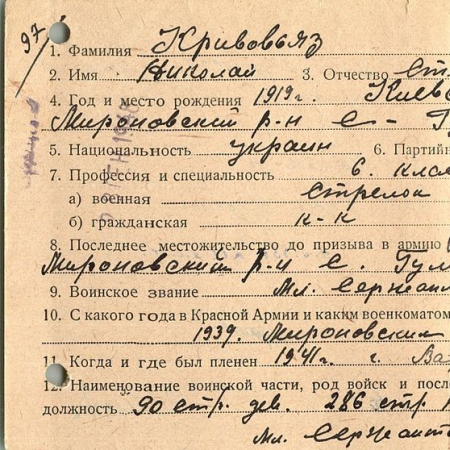 97
1. Фамилия Кривовьяз
2. Имя Николай 3. Отчество Ст
4. Год и место рождения 1919 г. Киевс
Мироновский р-н с-
5. Национальность украин 6. Партийн
7. Профессия и специальность 6. клас
а) военная Стрелок
б) гражданская к-к
8. Последнее местожительство до призыва в армию
Мироновский р-н с. Гул
9. Воинское звание Мл. Сержант
10. С какого года в Красной Армии и каким военкоматом
1939. Мироновским
11. Когда и где был пленен 1941 г. г. Ва
12. Наименование воинской части, род войск и после
должность 90 стр. див. 286 стр
Мл. Сержант